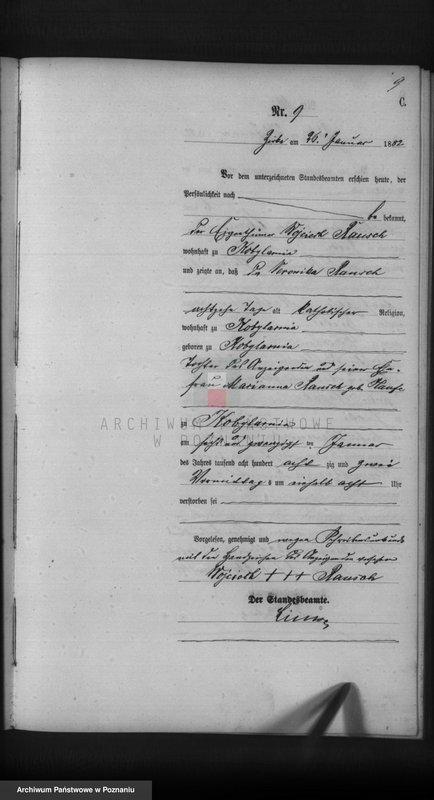 9
C.
Nr. 9
Zirke am 26. Januar 1882
Vor dem unterzeichneten Standesbeamten erschien heute, der
Persönlichkeit nach
be kannt,
der Eigenthümer Wojciech Rausch
wohnhaft zu Kobylarnia
und zeigte an, daß die Veronika Rausch
achtzehn Tage alt katholischer Religion,
wohnhaft zu Kobylarnia
geboren zu Kobylarnia
Tochter des Anzeigenden und seiner Ehe-
frau Marianna Rausch geb.
zu Kobylarnia
am sechs und zwanzigsten Januar
des Jahres tausend acht hundert acht zig und zwei
Vormittags um einhalb acht Uhr
verstorben sei
Vorgelesen, genehmigt und wegen Schreibensunkunde
mit den Handzeichen des Anzeigenden versehen
Wojciech + + + Rausch
Der Standesbeamte.
ARCHIWUM PAŃSTWOWE
W POZNANIU
Archiwum Państwowe w Poznaniu